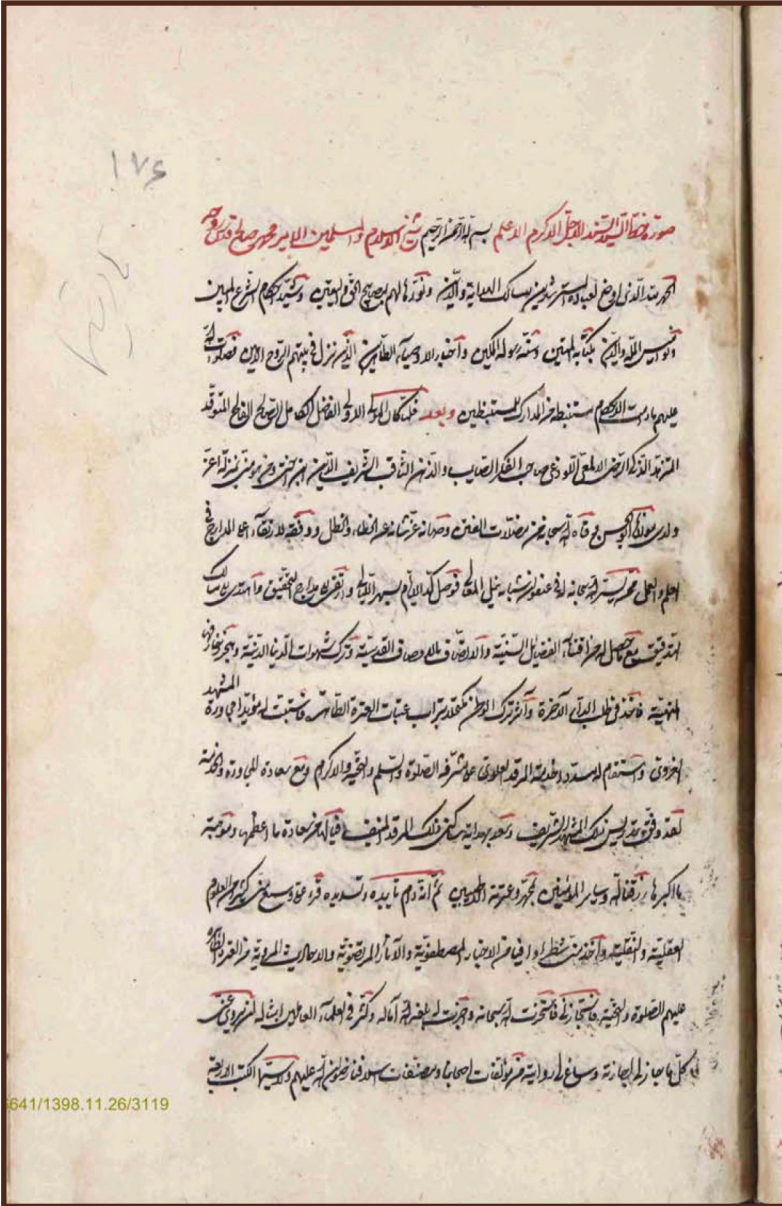 ۱۷۶
صورة خط السيد السند الاجل الاكرم الاعلم بسم الله الرحمن الرحيم شيخ الاسلام والمسلمين الامير محمد صالح قدس روحه
الحمد لله الذى اوضح لعباده المسترشدين مسالك الهداية والدين ونور لهم مصابيح الحق واليقين وشيد احكام الشرع المبين
ونواميس الملة والدين بكتابه المبين وسنة رسوله المكين وأخبار الاوصياء الطاهرين الذين نزل فى بيتهم الروح الامين فصلوات الله
عليهم مادامت الاحكام مستنبطة من المدارك للمستنبطين وبعد فلما كان المولى الاولى الفاضل الكامل الصالح الفالح المتوقد
المتزهد الذكى الرضى الالمعى اللوذعى صاحب الفكر الصايب والذهن الثاقب الشريف الدين ومن هو منى بمنزلة اعز
ولدى مولانا ابو الحسن وقاه الله سبحانه من مضلات الفتن وصانه عز شانه عن الخطاء والخطل ووفقه للارتقاء على المدارج فى
العلم والعمل ممن يسر الله سبحانه له فى عنفوان شبابه نيل المعالى فوصل كد الايام بسهر الليالى وارتقى مدارج التحقيق واهتدى مسالك
التدقيق مع ما حصل له من اقتناء الفضايل السنية والاتصاف بالاوصاف القدسية وترك شهوات الدنيا الدنية
فاخذ فى طلب الدار الآخرة وآثر ترك الوطن مكتحلا بتراب عتبات العترة الطاهرة فاستتبت له مؤيدا مجاورة المشهد
الغروى واستقام له مسددا خدمة المرقد العلوى على مشرفه الصلوة والسلم والتحية والاكرام ومع سعادة المجاورة والخدمة
لقد وفق بتدريس تلك المشهد الشريف وسعد بهداية ساكنى ذلك المرقد المنيف فيا لها من سعادة ما اعظمها وموهبة
ما اكبرها رزقنا الله وساير المؤمنين بمحمد وعترته الاطيبين ثم انه دام تاييده وتسديده قرء على وسمع منى كثيرا من العلوم
العقلية والنقلية وأخذ منى شطرا وافيا من الاخبار المصطفوية والآثار المرتضوية والاحاديث المروية من العترة الطاهرة
عليهم الصلوة والتحية فاستجازنى فاستخرت الله سبحانه واجزت له بلغه الله آماله وكثر فى العلماء العاملين امثاله ان يروى عنى
كل ما جاز لى اجازته وساغ لى روايته من مؤلفات اصحابنا ومصنفات سلافنا رضوان الله عليهم ولا سيما الكتب الاربعة
641/1398.11.26/3119